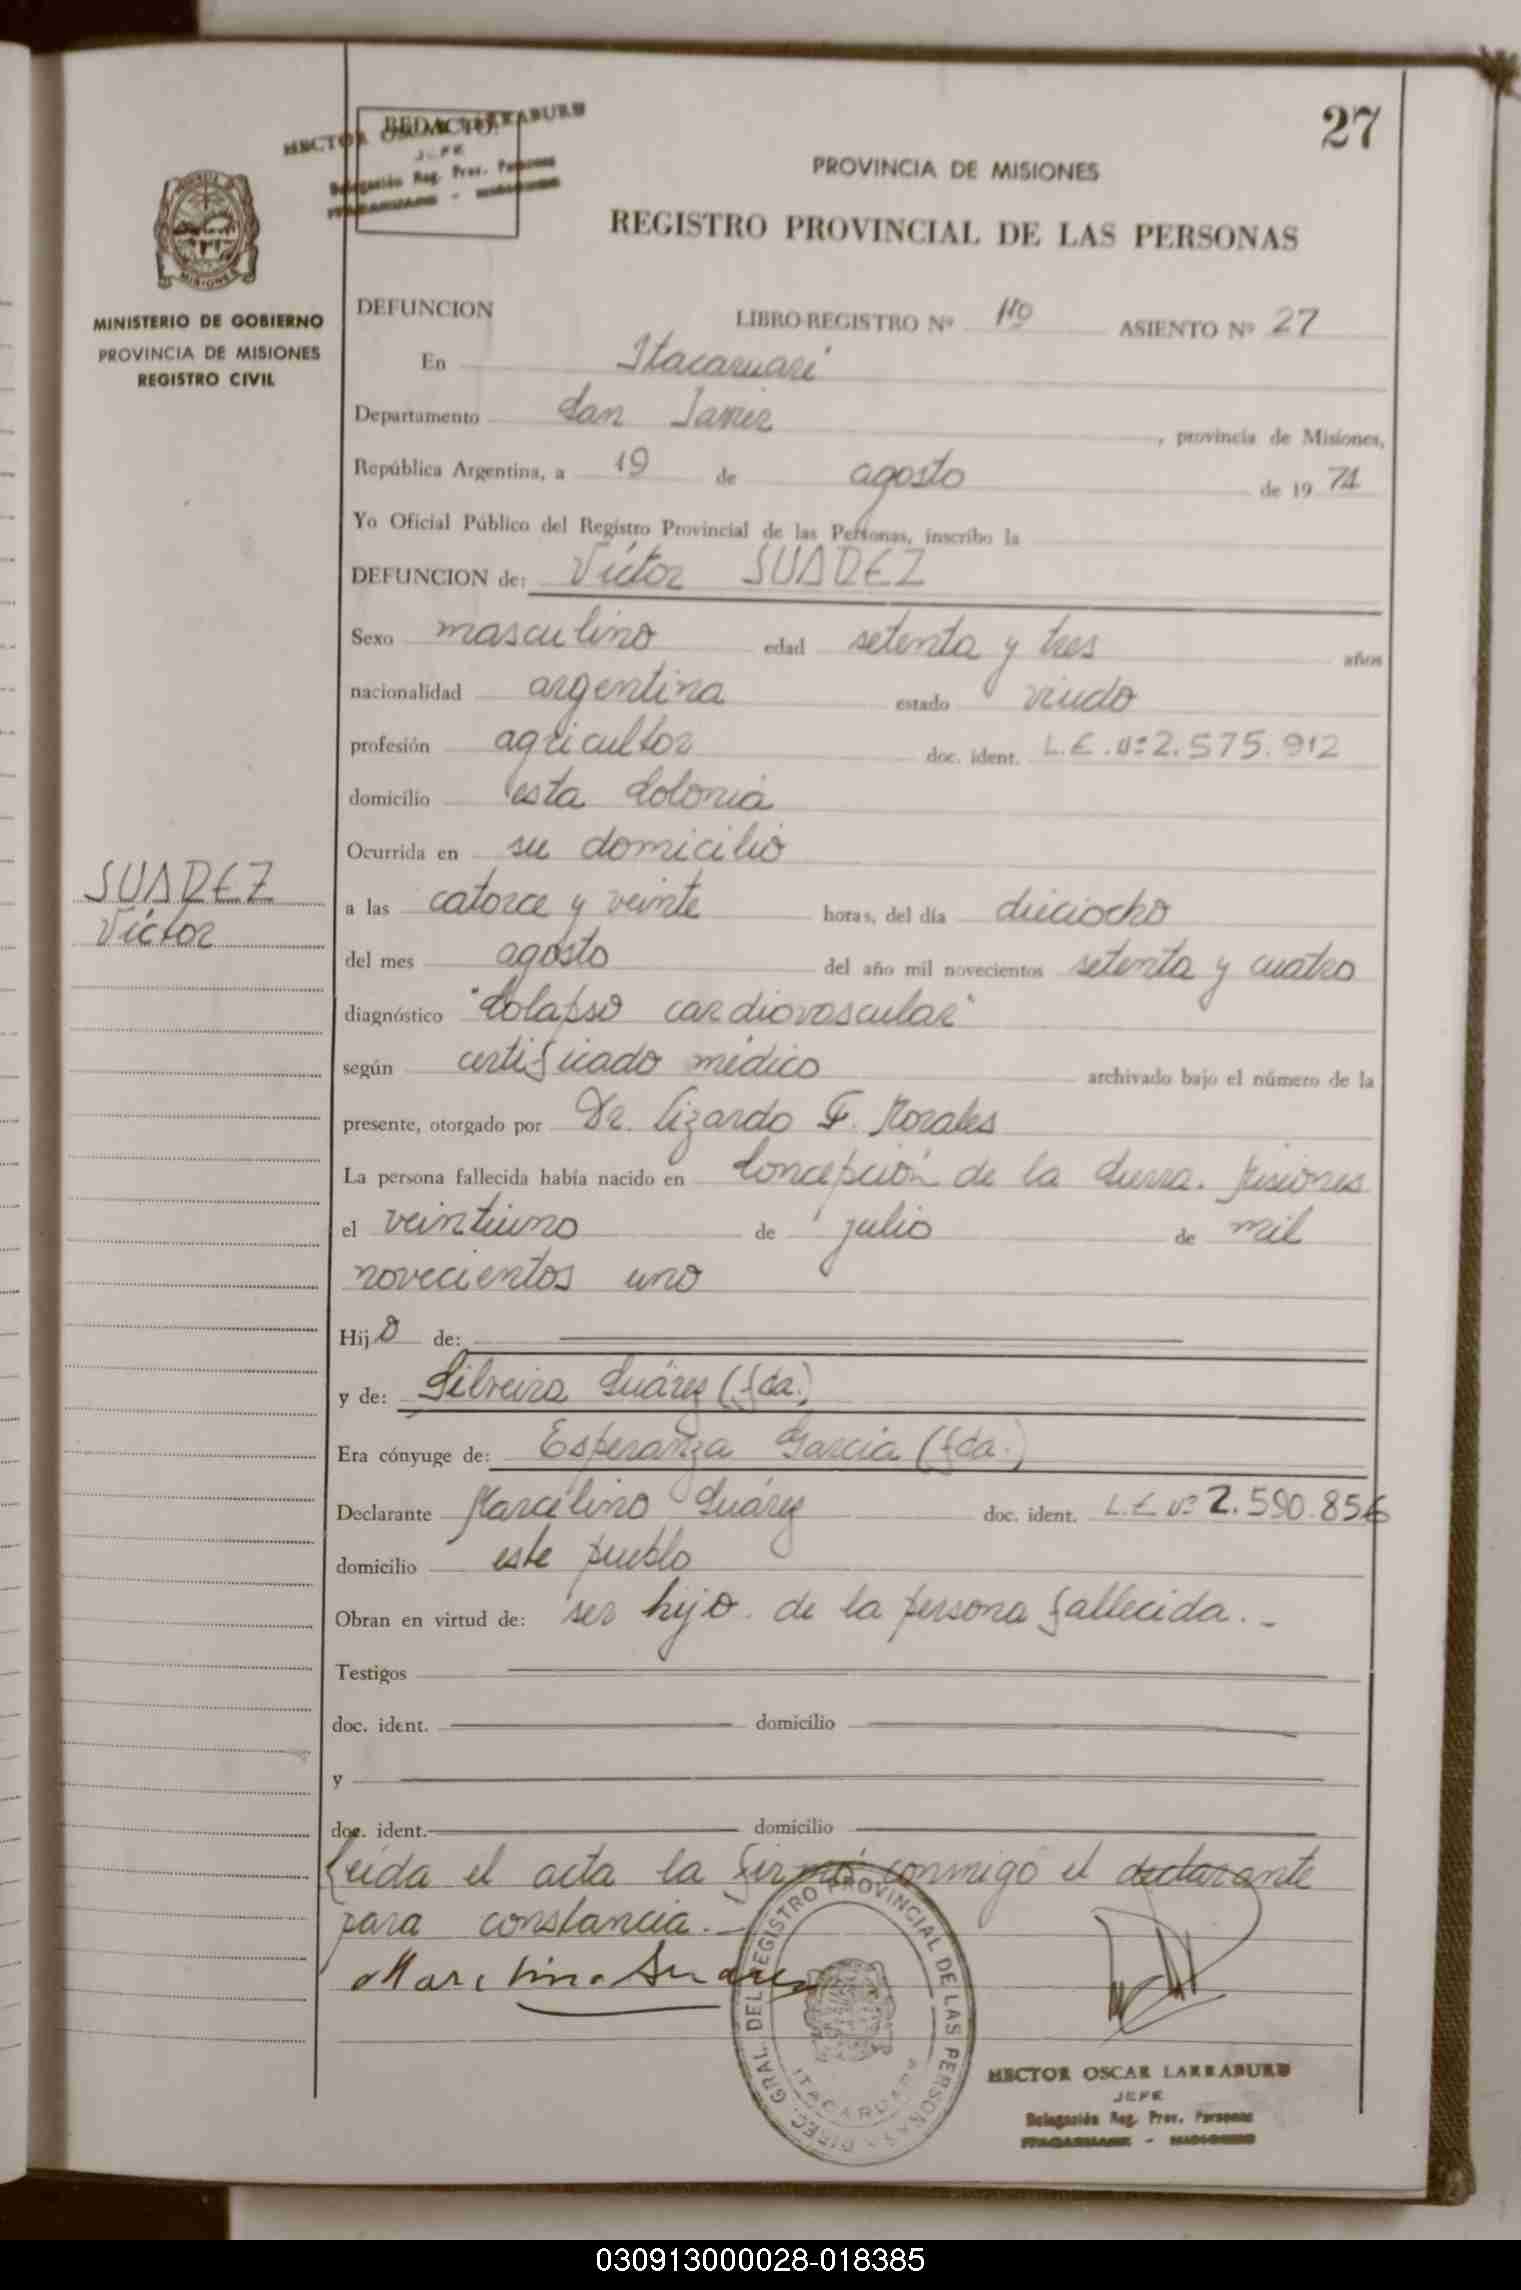 27
REDACTO:
HECTOR OSCAR LARRABURU
JEFE
Delegación Reg. Prov. Personas
ITACARUARE - MISIONES
PROVINCIA DE MISIONES
REGISTRO PROVINCIAL DE LAS PERSONAS
MISIONES
MINISTERIO DE GOBIERNO
PROVINCIA DE MISIONES
REGISTRO CIVIL
DEFUNCION LIBRO-REGISTRO Nº ASIENTO Nº 27
En Itacaruaré
Departamento San Javier, provincia de Misiones,
República Argentina, a 19 de agosto de 19 74
Yo Oficial Público del Registro Provincial de las Personas, inscribo la
DEFUNCION de: Víctor SUAREZ
Sexo masculino edad setenta y tres años
nacionalidad argentina estado viudo
profesión agricultor doc. ident. L.E.nº 2.575.912
domicilio esta Colonia
Ocurrida en su domicilio
SUAREZ
Víctor
a las catorce y veinte horas, del día dieciocho
del mes agosto del año mil novecientos setenta y cuatro
diagnóstico "Colapso cardiovascular"
según certificado médico archivado bajo el número de la
presente, otorgado por Dr. Lizardo F. Morales
La persona fallecida había nacido en Concepción de la Sierra. Misiones
el veintiuno de julio de mil
novecientos uno
Hijo de:
y de: Silveira Suárez (fda.)
Era cónyuge de: Esperanza Garcia (fda.)
Declarante Marcelino Suárez doc. ident. L.E nº 2.590.856
domicilio este pueblo
Obran en virtud de: ser hijo de la persona fallecida.-
Testigos
doc. ident. domicilio
y
doc. ident. domicilio
Leída el acta la firmó conmigo el declarante
para constancia.-
Marcelino Suarez
DIREC. GRAL. DEL REGISTRO PROVINCIAL DE LAS PERSONAS
ITACARUARE
HECTOR OSCAR LARRABURU
JEFE
Delegación Reg. Prov. Personas
ITACARUARE - MISIONES
030913000028-018385